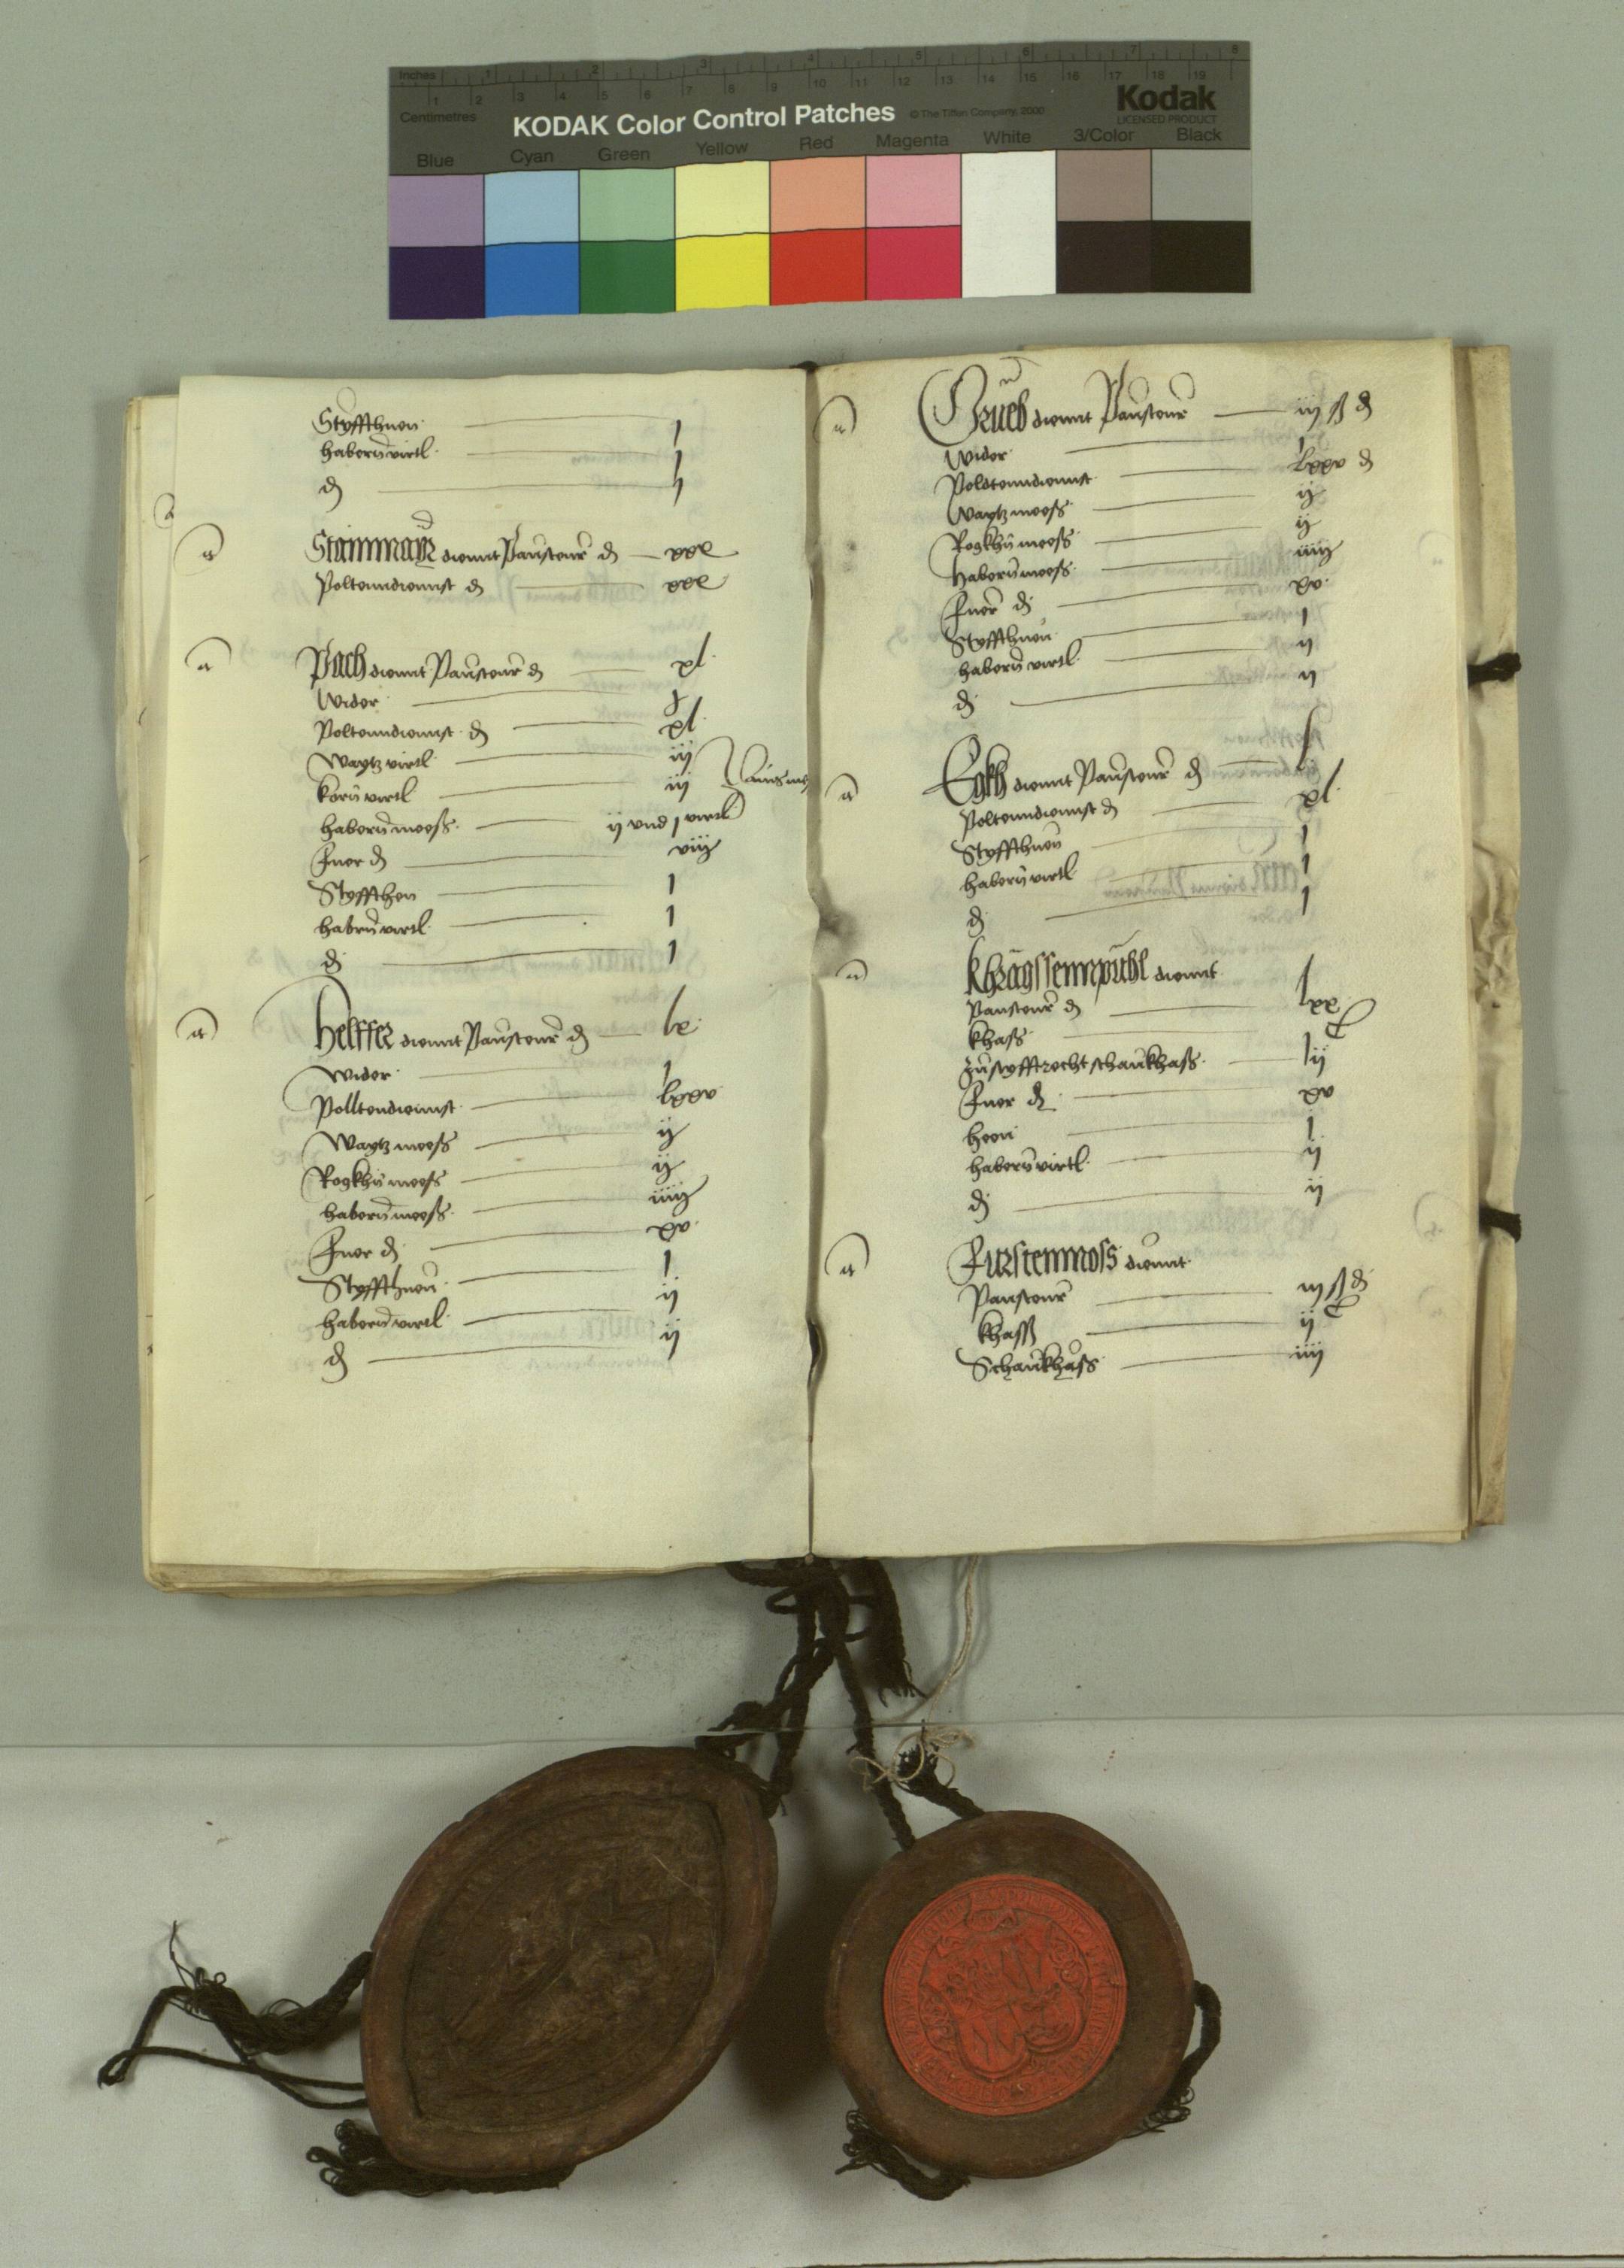 Inches 1 2 3 4 5 6 7 8
Centimetres 1 2 3 4 5 6 7 8 9 10 11 12 13 14 15 16 17 18 19
KODAK Color Control Patches © The Tiffen Company, 2000 Kodak
LICENSED PRODUCT
Blue Cyan Green Yellow Red Magenta White 3/Color Black
Styffthuen j
habern virtl j
d j
Stainmayr diennt Pausteur d xxx
Poltenndiennst d xxx
Pach diennt Paustewr d xl
Wider j
Poltenndiennst d xl
Waytz virtl iij
korn virtl iij
habern mess ij vnd j virtl
Fuer d viij
Styffthen j
habern virtl j
d j
Helffer diennt Paustewr d lx
Wider j
Polltendiennst lxxv
Waytz mess ij
Rogkhn mess ij
habern mess iiij
Fuer d xv
Styffthuen j
habern virtl ij
d ij
Grueb diennt Paustewr iij ß d
Wider j
Poldtenndiennst lxxv d
Waytz mess ij
Rogkhn mess ij
Habern mess iiij
Fuer d xv
Styffthuen j
habern virtl ij
d ij
Egkh diennt Paustewr d l
Poltenndiennst d xl
Styffthuen j
habern virtl j
d j
Khrägssennpühl diennt
Paustewr d lxx
khass
zu styfftrecht schaukhass ij
Fuer d xv
heen j
habern virtl ij
d ij
Furstenmoss diennt
Paustewr iij ß d
khass ij
Schaukhäss iiij